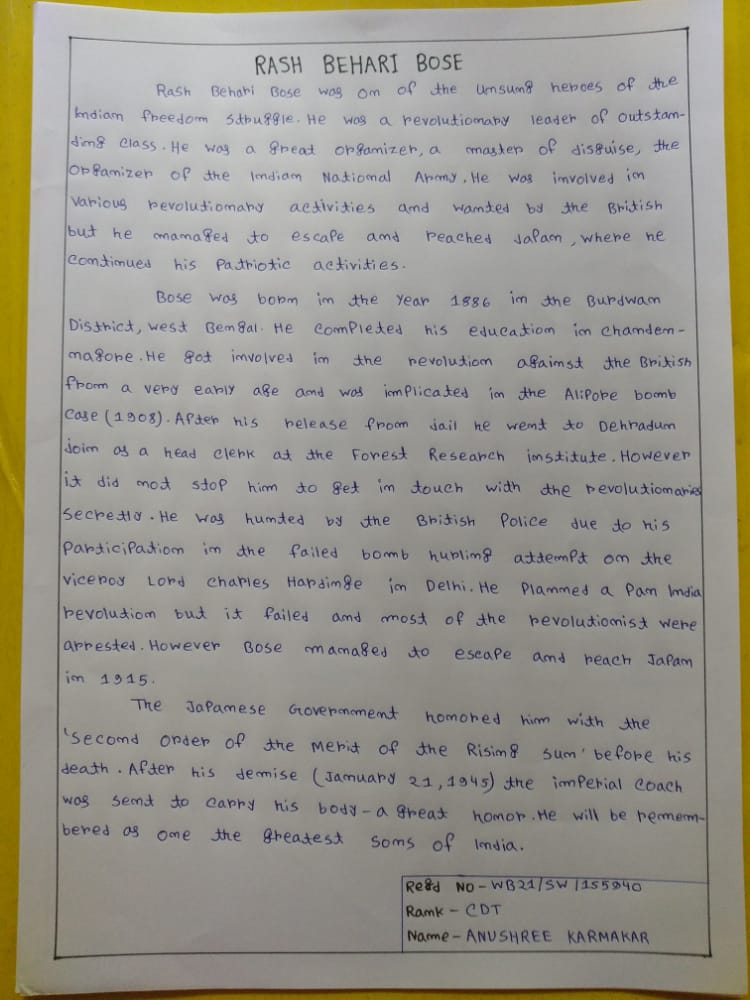 RASH BEHARI BOSE
Rash Behari Bose was on of the unsung heroes of the
Indian freedom struggle. He was a revolutionary leader of outstan-
ding class. He was a great organizer, a master of disguise, the
Organizer of the Indian National Army. He was involved in
various revolutionary activities and wanted by the British
but he managed to escape and reached Japan, where he
continued his Patriotic activities.
Bose was born in the Year 1886 in the Burdwan
District, West Bengal. He completed his education in Chanden-
nagore. He got involved in the revolution against the British
from a very early age and was implicated in the Alipore bomb
Case (1908). After his release from Jail he went to Dehradun
join as a head clerk at the Forest Research institute. However
it did not stop him to get in touch with the revolutionaries
Secretly. He was hunted by the British Police due to his
Participation in the failed bomb hurling attempt on the
viceroy Lord Charles Hardinge in Delhi. He Planned a Pan India
revolution but it failed and most of the revolutionist were
arrested. However Bose managed to escape and reach Japan
in 1915.
The Japanese Government honored him with the
'Second order of the Merit of the Rising Sun' before his
death. After his demise (January 21, 1945) the imperial Coach
was sent to carry his body - a great honor. He will be remem-
bered as one the greatest sons of India.
Regd NO - WB21/SW/155940
Rank - CDT
Name - ANUSHREE KARMAKAR